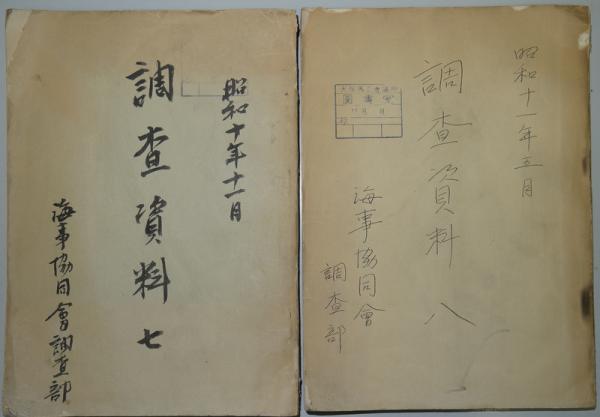 昭和十年十一月
調査資料七
海事協同會調査部
昭和十一年五月
調査資料 八
海事協同會
調査部